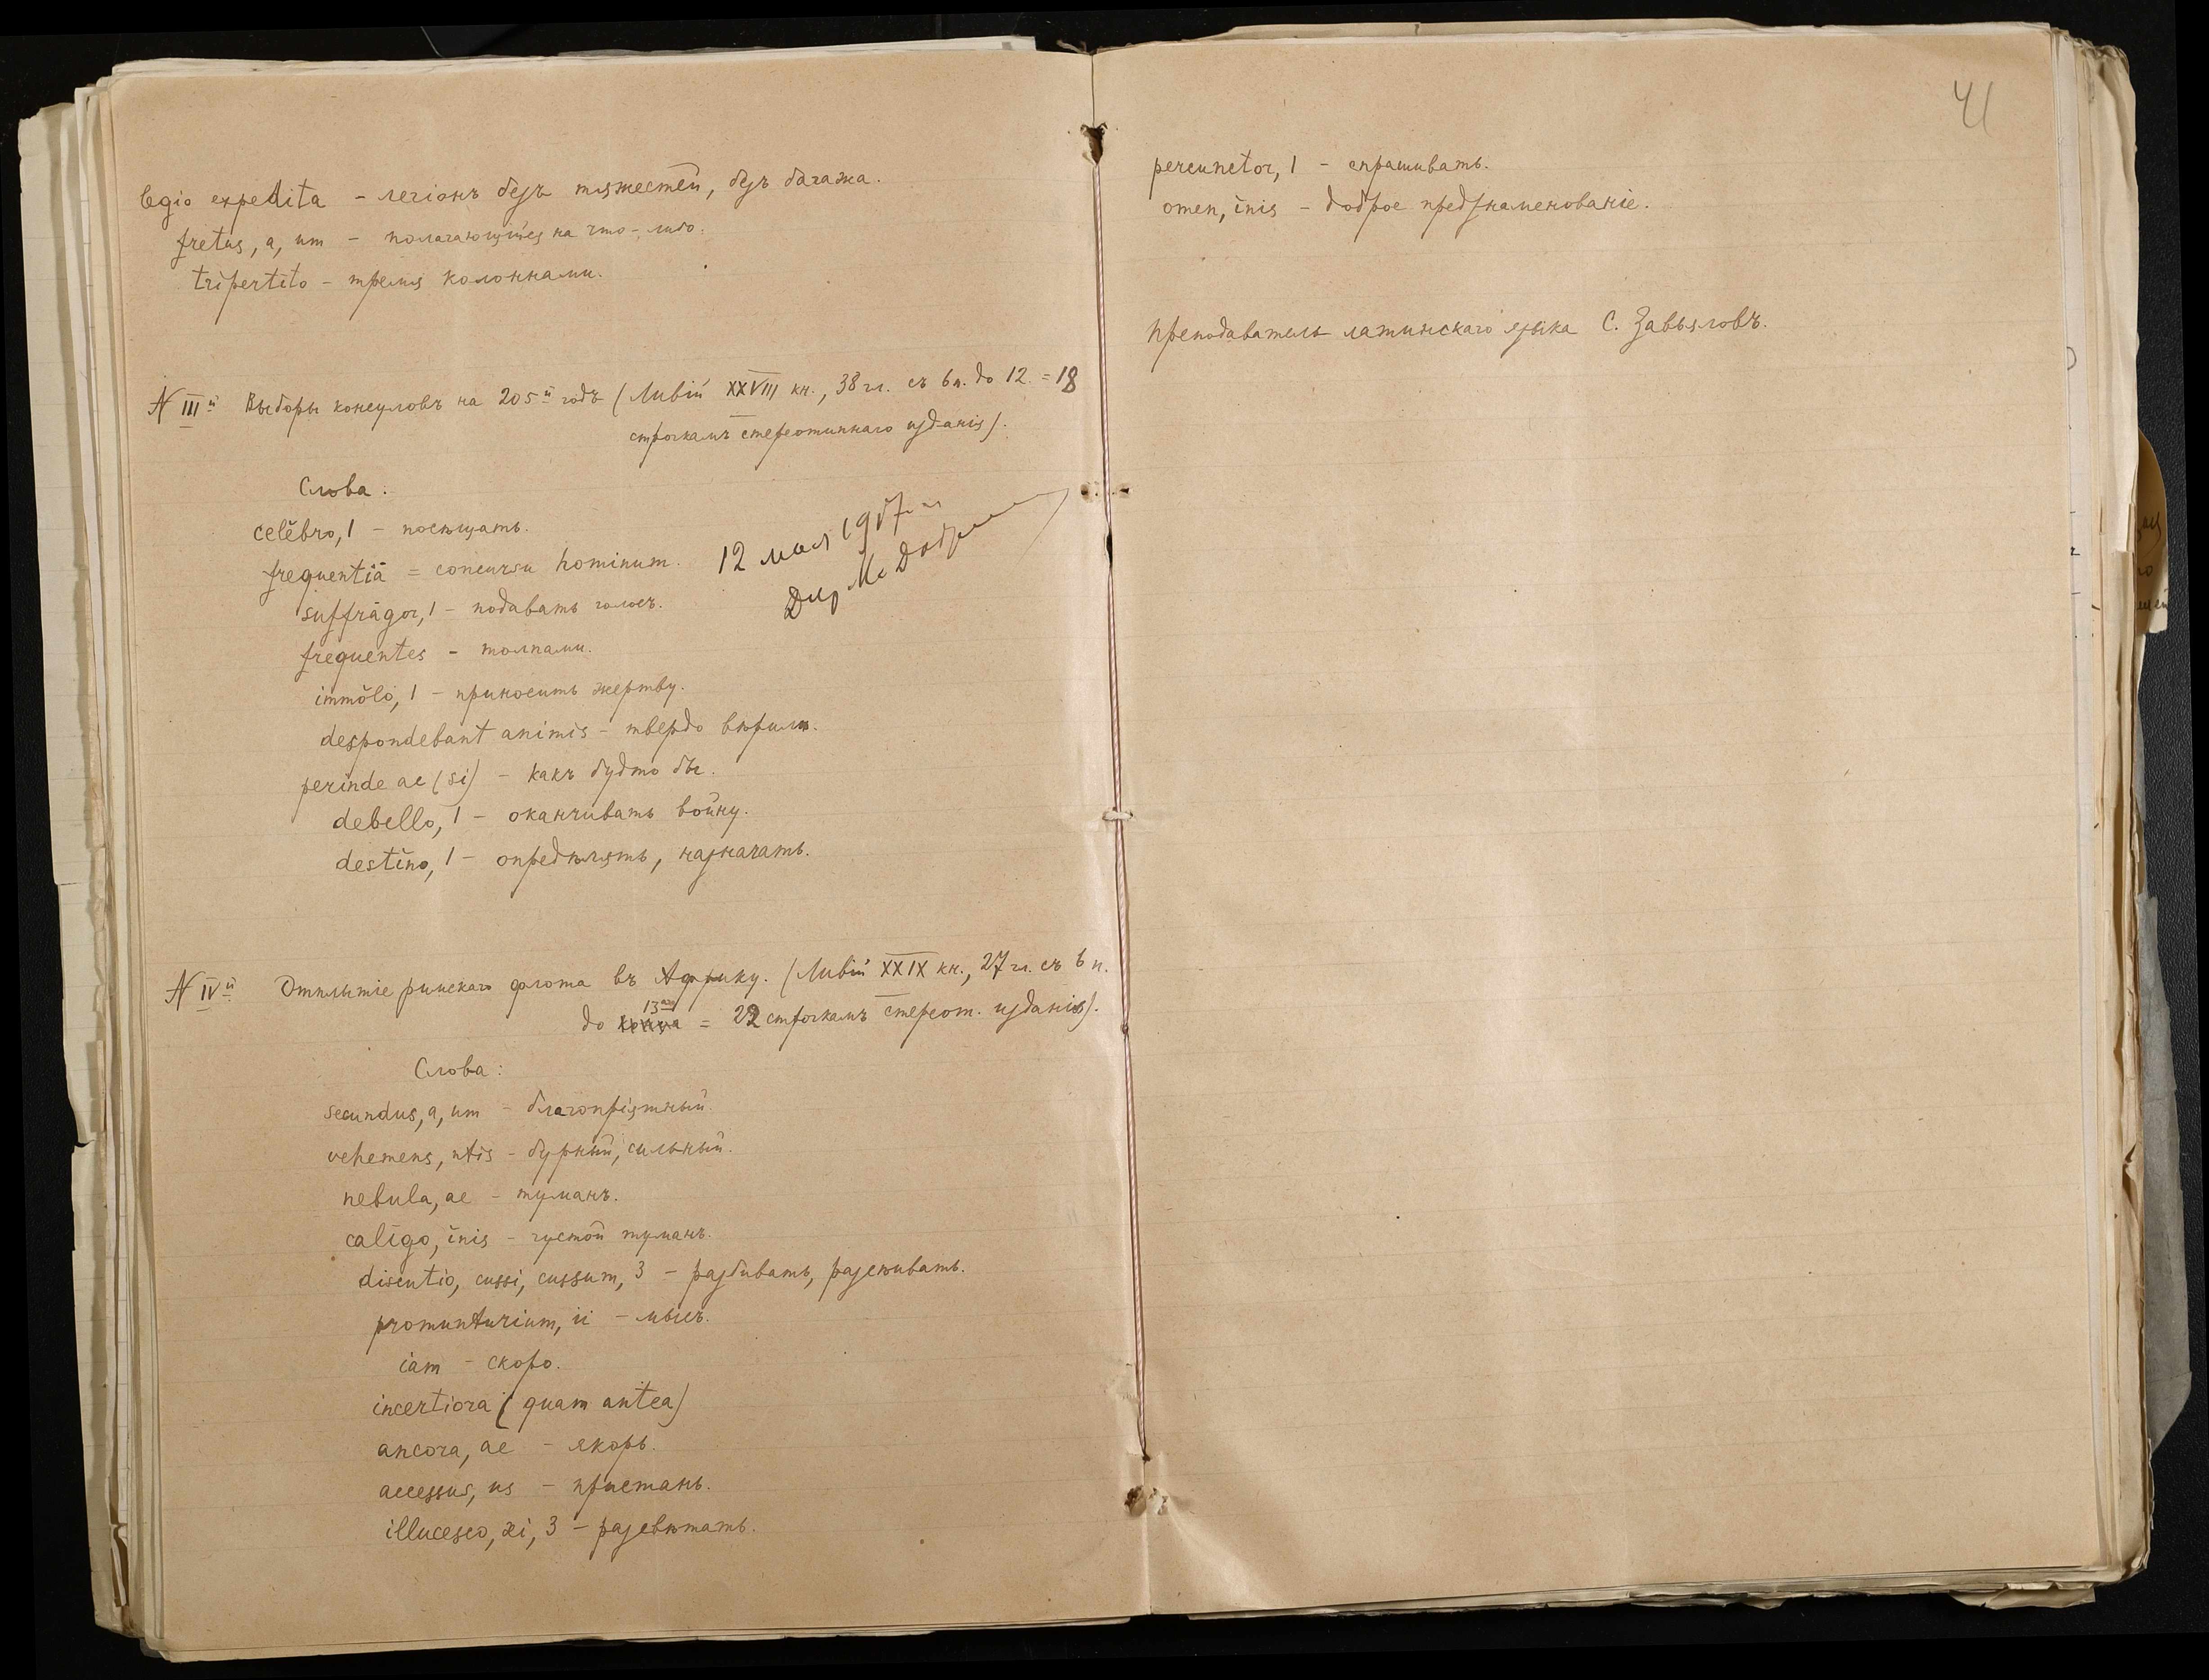 legio expedita – легіонъ безъ тяжестей, безъ багажа.
fretus, a, um – полагающійся на что-либо.
tripertito – тремя колоннами.
N III й Выборы консуловъ на 205 й годъ (Ливій XXVIII кн., 38 гл. съ 6 п. до 12. = 18
строкамъ стереотипнаго изданія).
Слова:
celĕbro, 1 – посѣщать.
frequentiā = concursu hominum.
12 мая 1907
suffrāgor, 1 – подавать голосъ.
Дир М.
frequentes – толпами.
immŏlo, 1 – приносить жертву.
despondebant animis – твердо вѣрили.
perinde ac (si) – какъ будто бы.
debello, 1 – оканчивать войну.
destĭno, 1 – опредѣлять, назначать.
N IV й Отплытіе римскаго флота въ Африку. (Ливій XXIX кн., 27 гл. съ 6 п.
до конца 13 = 22 строкамъ стереот. изданія).
Слова:
secundus, a, um – благопріятный.
vehemens, ntis – бурный, сильный.
nebula, ae – туманъ.
calīgo, ĭnis – густой туманъ.
discutio, cussi, cussum, 3 – разбивать, разсѣивать.
promunturium, ii – мысъ.
iam – скоро.
incertiora (quam antea)
ancora, ae – якорь.
accessus, us – пристань.
illucesco, xi, 3 – разсвѣтать.
41
percunctor, 1 – спрашивать.
omen, ĭnis – доброе предзнаменованіе.
Преподаватель латинскаго языка С. Завьяловъ.